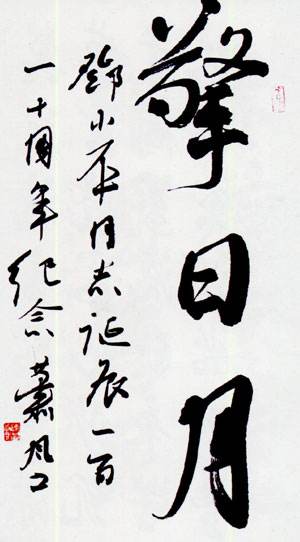 擎日月
鄧小平同志诞辰一百
一十周年纪念 蕭